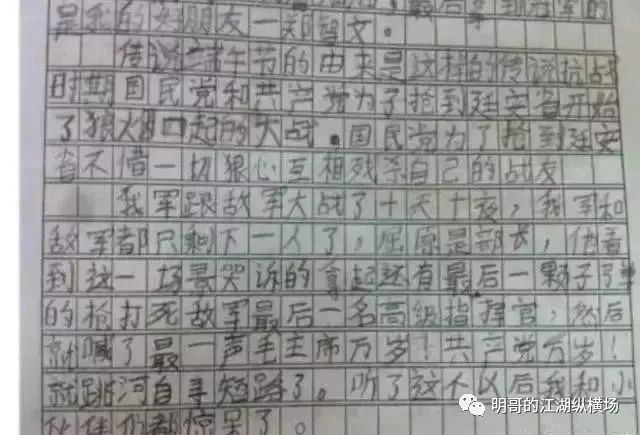 最后拿到冠军的
是我的好朋友一郑智文。
传说端午节的由来是这样的传说抗战
时期国民党和共产党为了抢到延安省开始
了狼烟四起的大战。国民党为了抢到延安
省不惜一切狠心互相残杀自己的战友
我军跟敌军大战了十天十夜，我军和
敌军都只剩下一人了，屈原是部长，他看
到这一场景哭诉的拿起还有最后一颗子弹
的枪打死敌军最后一名高级指挥官，然后
就喊了最一声毛主席万岁！共产党万岁！
就跳河自寻短路了。听了这个以后我和小
伙伴们都惊呆了。
明哥的江湖纵横场